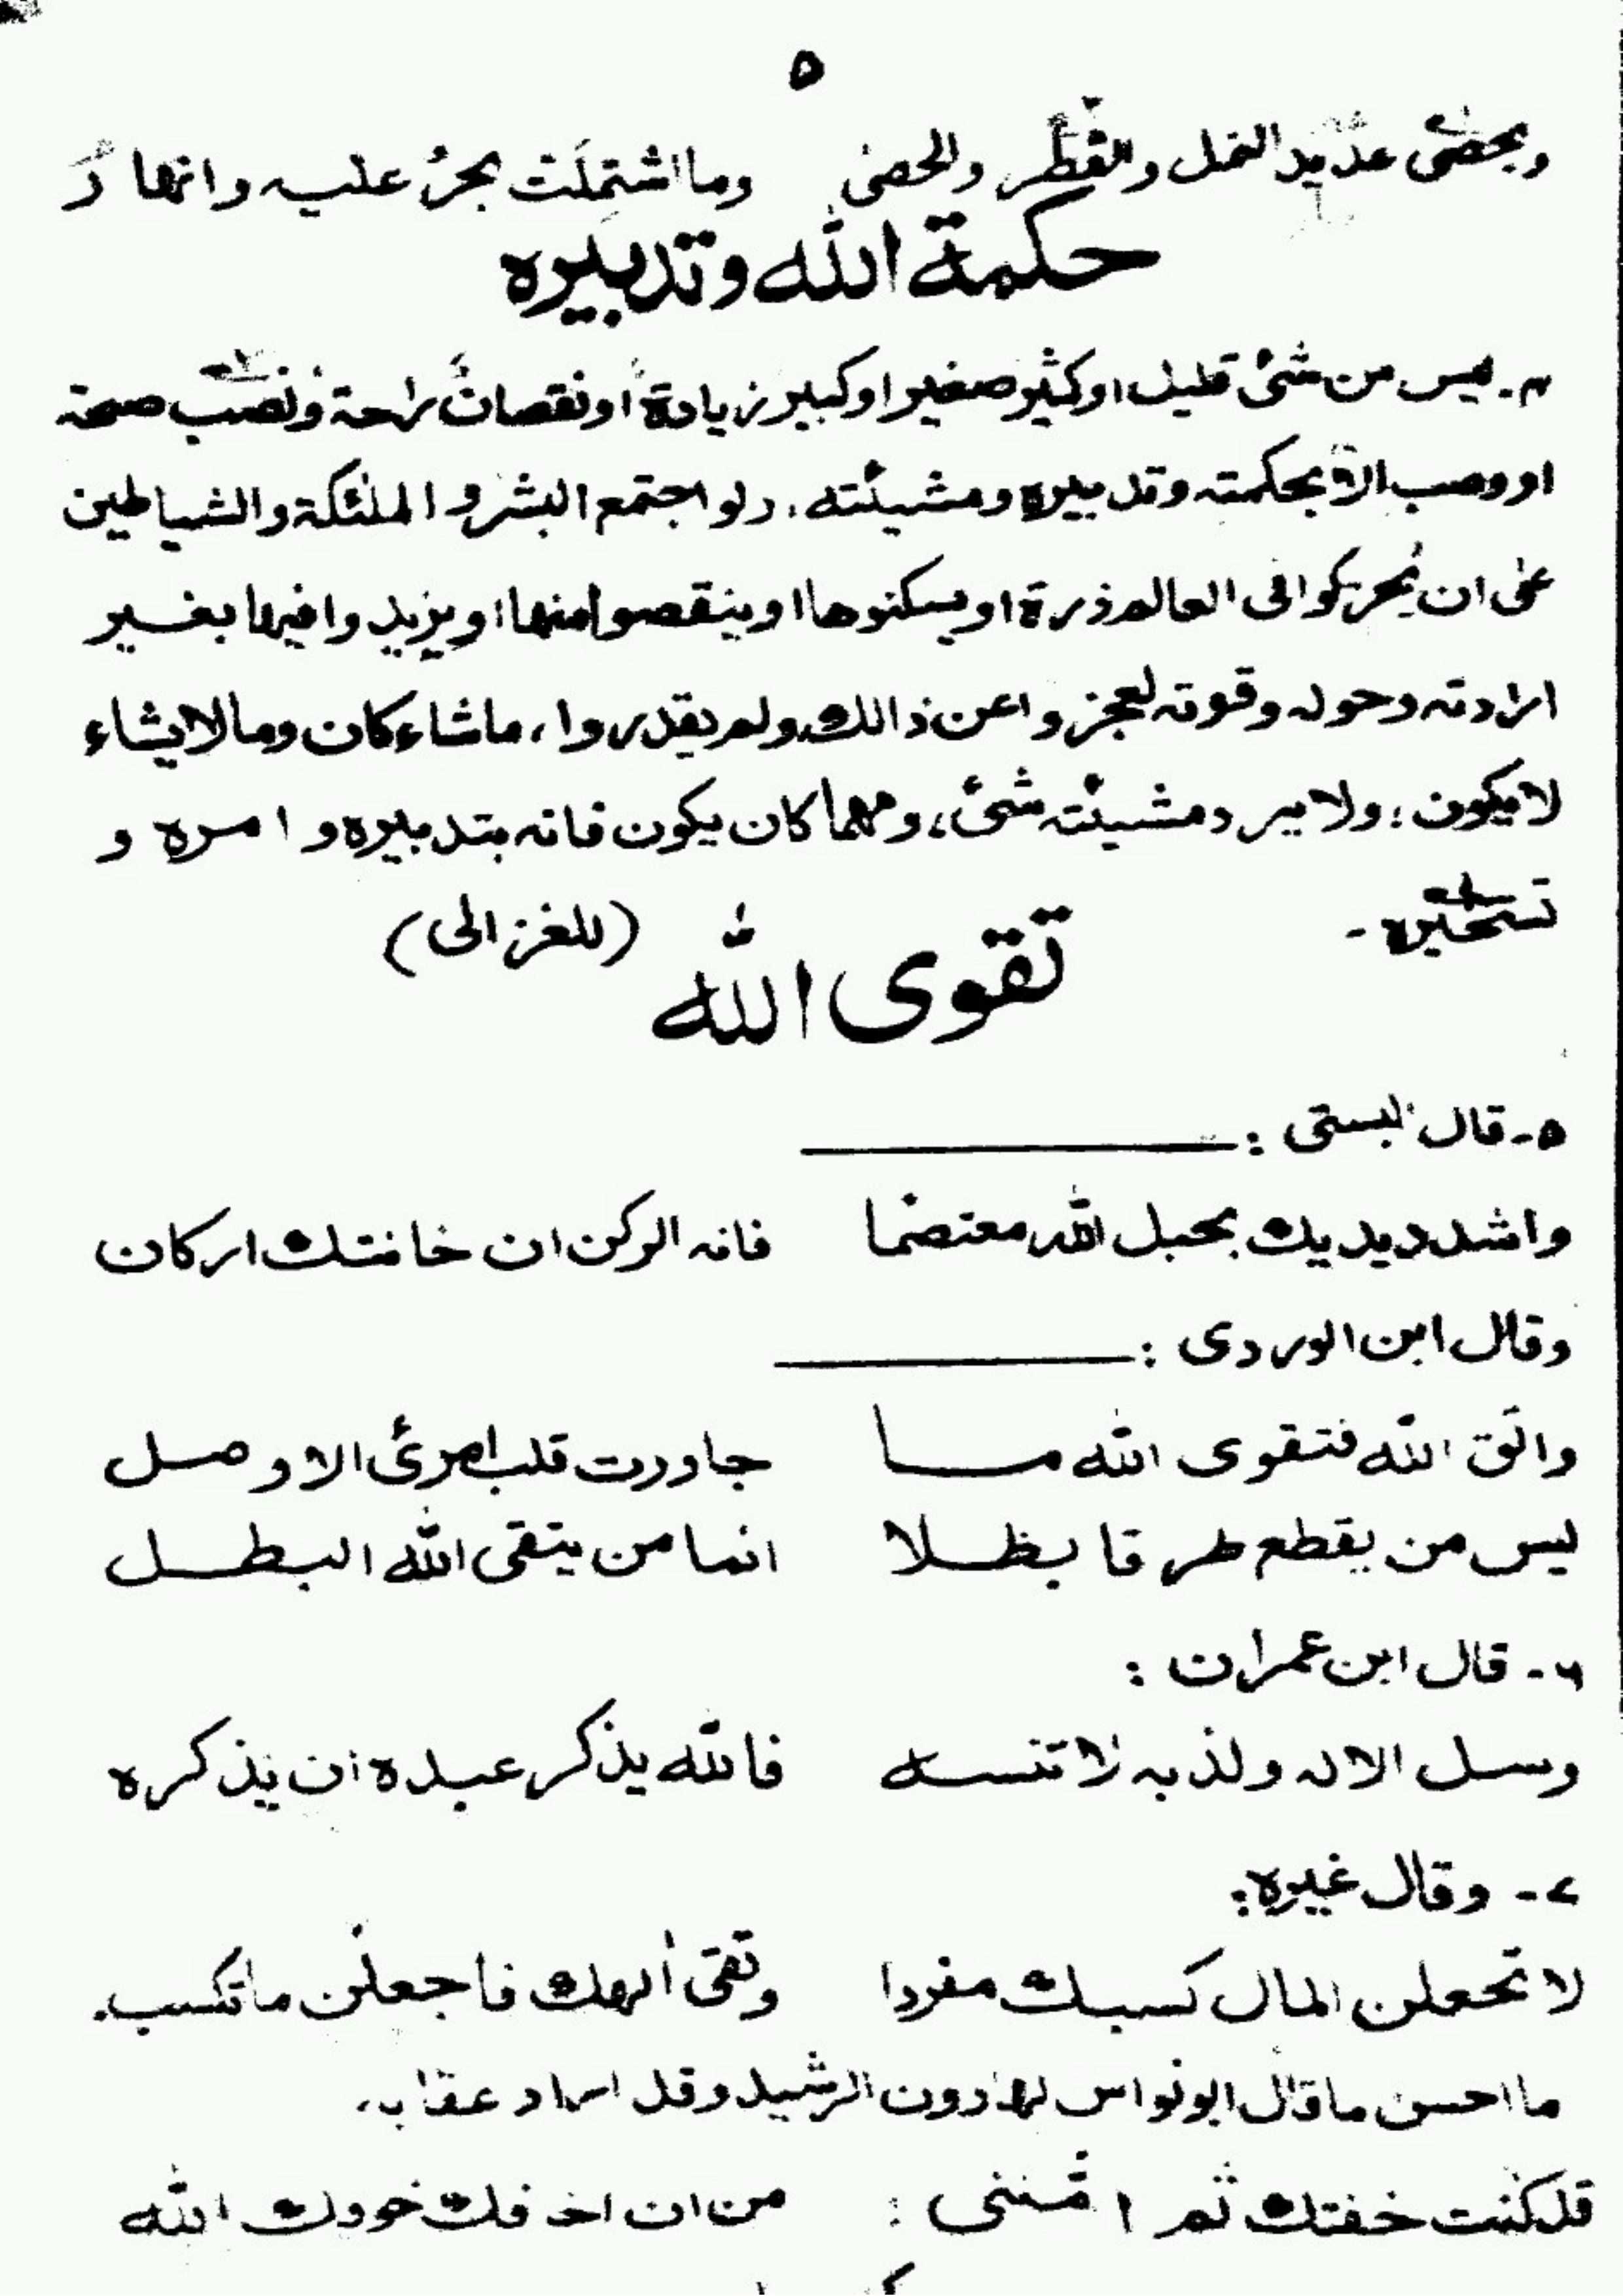 ۵
ويحصى عديد النمل والقطر والحصى وما اشتملت بحر عليه وانهار
حكمة الله وتدبيره
۴- ليس من شئ قليل اوكثير صغير اوكبير زيادة اونقصان راحة ونصب صحة
او وصب الا بحكمته وتدبيره ومشيئته. ولو اجتمع البشر و الملئكة والشياطين
على ان يحركوا فى العالم ذرة او يسكنوها او ينقصوا منها او يزيد وا فيها بغير
ارادته وحوله وقوته لعجز واعن ذالك ولم يقدروا، ماشاء كان ومالايشاء
لايكون؛ ولايرد مشيئته شئ، ومهما كان يكون فانه بتدبيره و امره و
تسخيره -
(للغزالى)
تقوى الله
۵- قال البستى :
واشدد يديك بحبل الله معتصما فانه الركن ان خانتك اركان
وقال ابن الوردى :
واتق الله فتقوى الله ما جاورت قلب امرئ الا وصل
ليس من يقطع طرقا بطلا انما من يتقى الله البطل
۶- قال ابن عمران :
وسل الاله ولذ به لا تنسه فالله يذكر عبده ان يذكره
۷- وقال غيره:
لا تجعلن المال كسبك مفردا وتقى الهك فاجعلن ماتكسب.
ما احسن ماقال ابو نواس لهارون الرشيد وقد اراد عقابه.
قدكنت خفتك ثم امننى : من ان اخافك خوفك الله